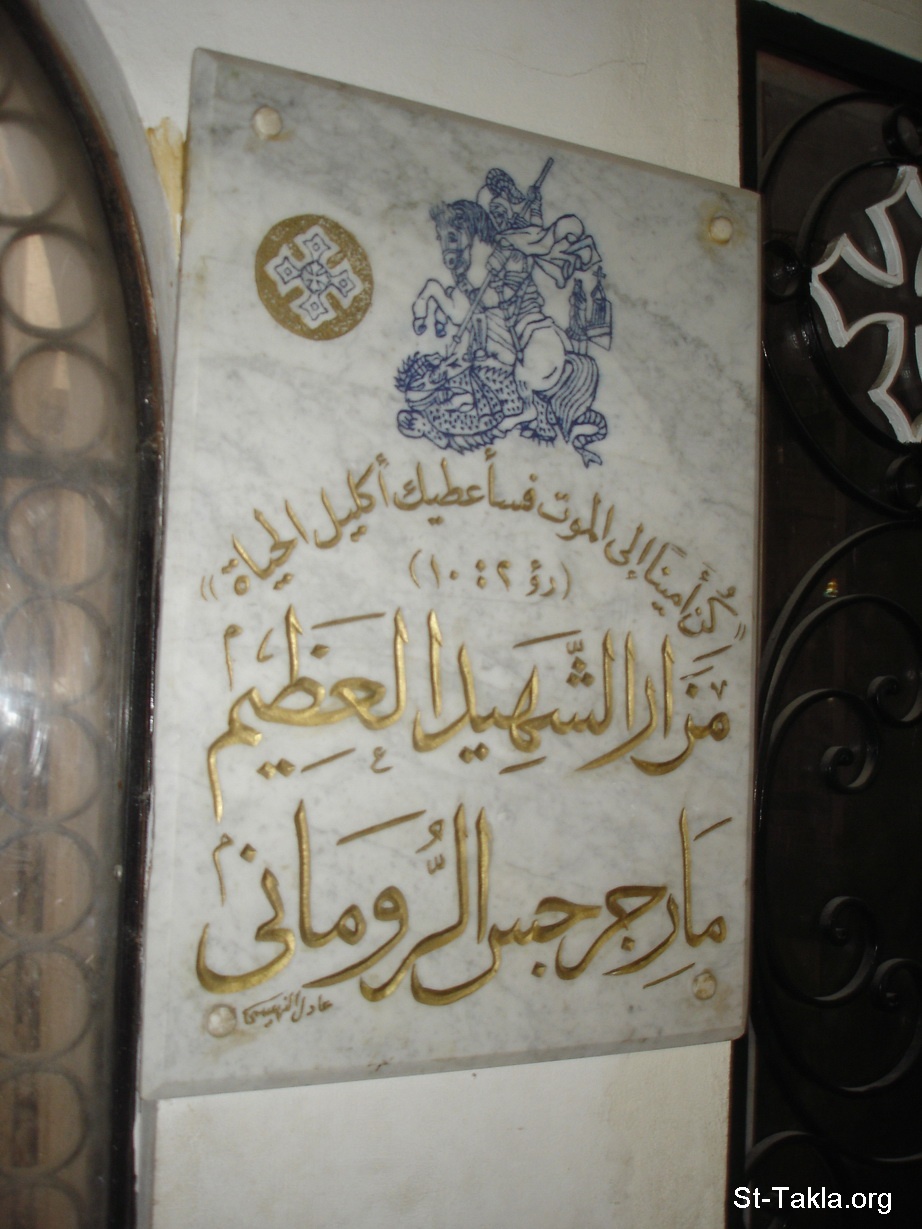 «كُنْ أَمينَا إلى الموت فسأعطيك أكليل الحياة»
(رؤ ٢ : ١٠)
مَزارالشَّهِيدالعَظِيم
مَارِجرجس الرُّومَانى
St-Takla.org